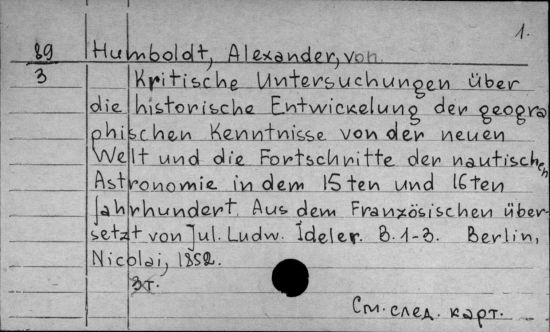 1.
89 Humboldt, Alexander, von.
3 Kritische Untersuchungen über
die historische Entwickelung der geogra
phischen Kenntnisse von der neuen
Welt und die Fortschritte der nautischen
Astronomie in dem 15ten und 16ten
Jahrhundert. Aus dem Französischen über-
setzt von Jul. Ludw. Ideler. B. 1-3. Berlin,
Nicolai, 1852.
3т.
См. след. карт.